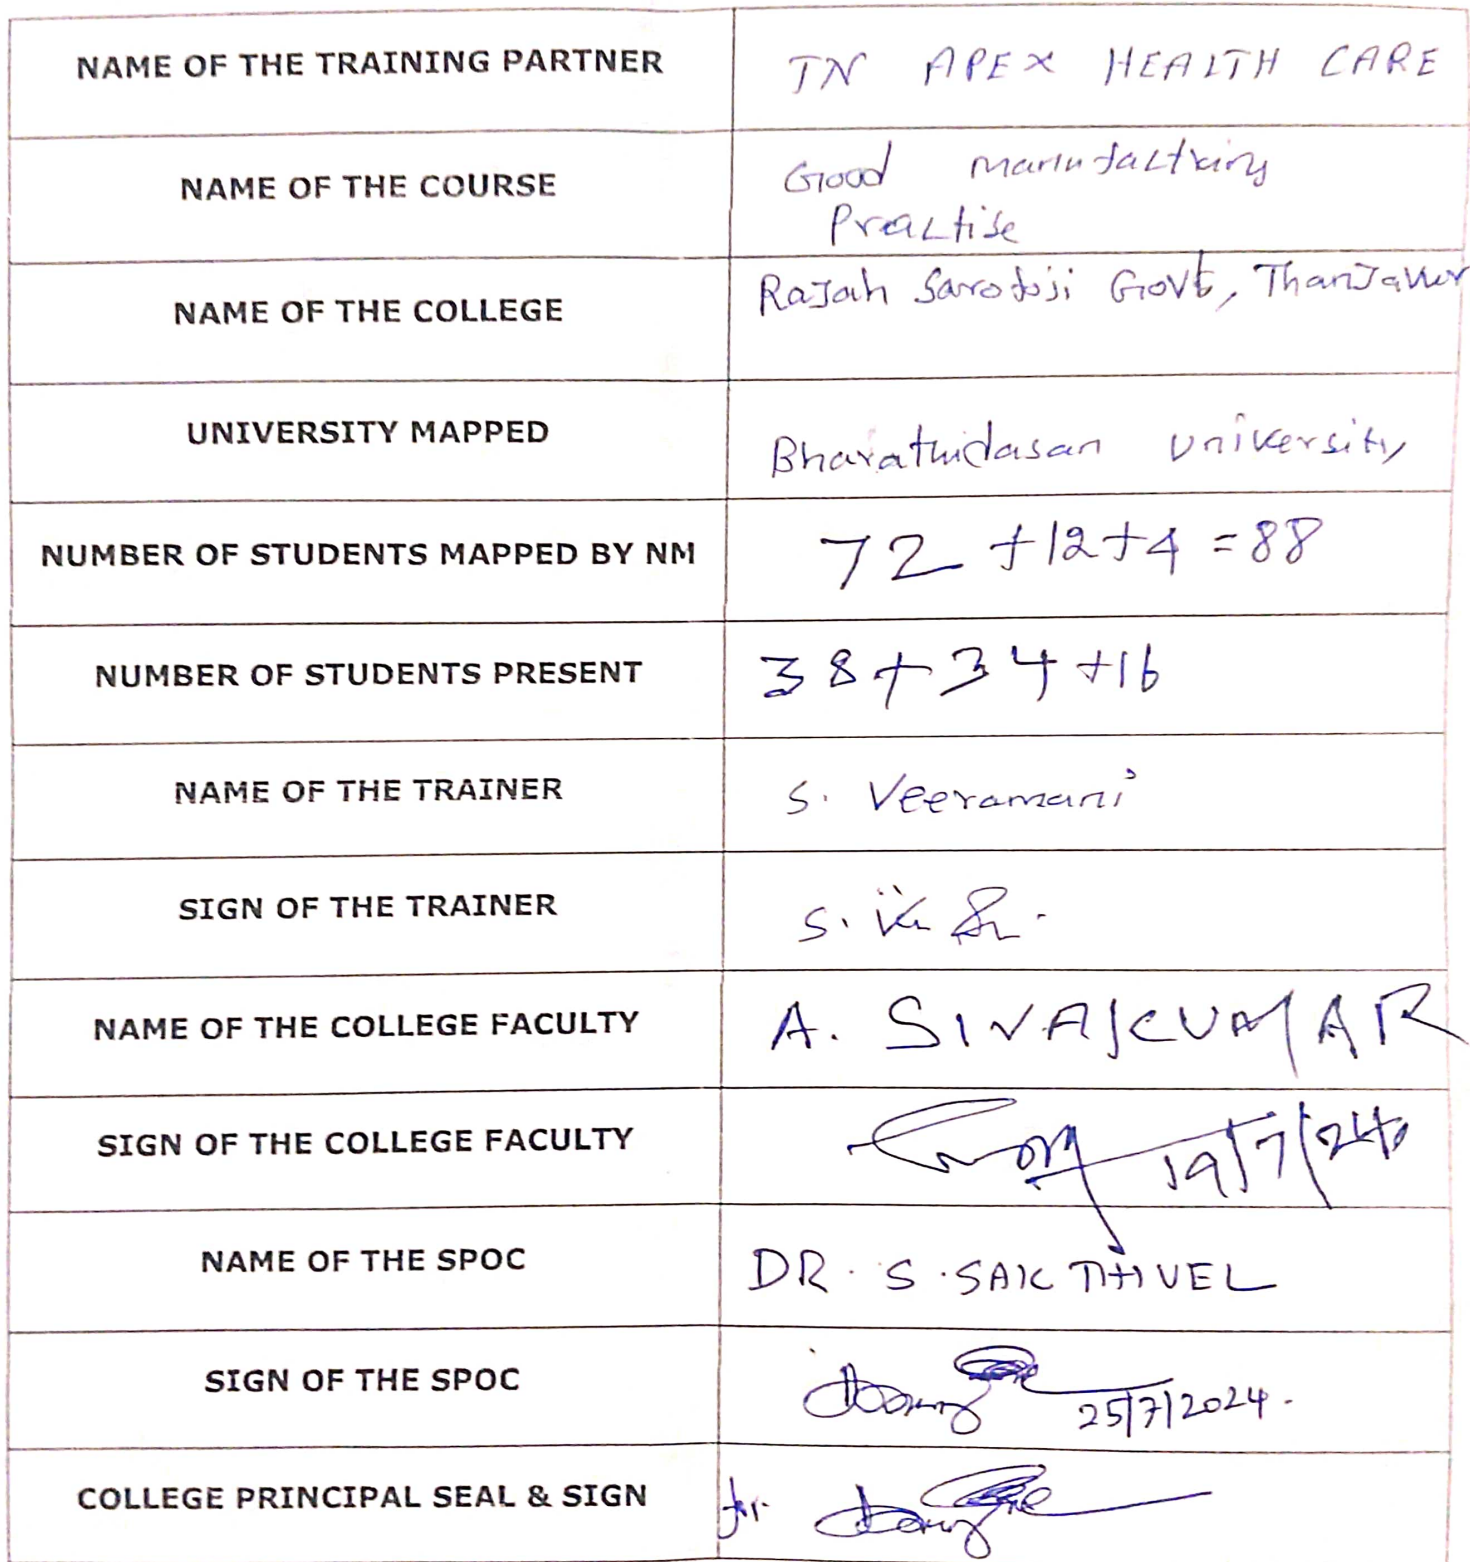 NAME OF THE TRAINING PARTNER TN APEX HEALTH CARE
NAME OF THE COURSE Good manufacturing
Practise
NAME OF THE COLLEGE Rajah Sarofoji Govt, Thanjavur
UNIVERSITY MAPPED Bharathidasan University
NUMBER OF STUDENTS MAPPED BY NM 72 +12+4 =88
NUMBER OF STUDENTS PRESENT 38+34+16
NAME OF THE TRAINER S. Veeramani
SIGN OF THE TRAINER S.
NAME OF THE COLLEGE FACULTY A. SIVAKUMAR
SIGN OF THE COLLEGE FACULTY 19/7/24
NAME OF THE SPOC DR. S. SAKTHIVEL
SIGN OF THE SPOC 25/7/2024.
COLLEGE PRINCIPAL SEAL & SIGN for